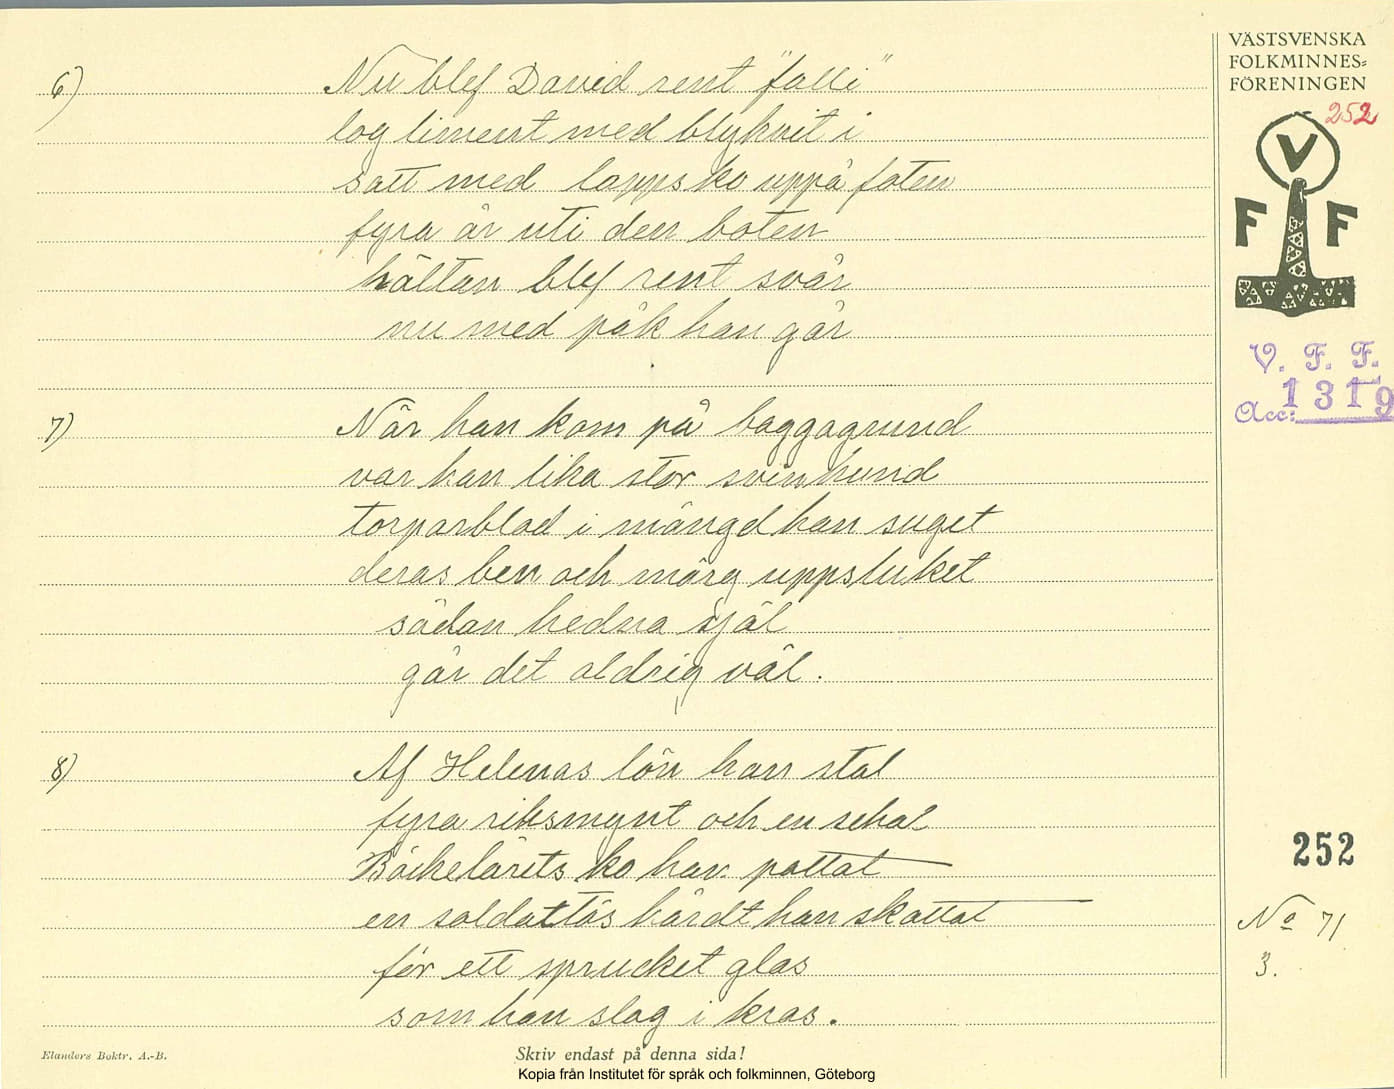 VÄSTSVENSKA
FOLKMINNES-
FÖRENINGEN
252
V
F F
V. F. F.
Acc: 1319
6) Nu blef David rent "falli"
log liment med blyhvit i
satt med loppsko uppå foten
fyra år uti den boten
hältan blef rent svår
nu med påk han går
7) När han kom på baggagrund
var han lika stor svinhund
torparblod i mängd han suget
deras ben och märg uppsluket
sådan hedna själ
går det aldrig väl.
8) Af Helenas lön han stal
fyra riksmynt och en schal
ko har pattat
en soldattös hårdt han skattat
för ett sprucket glas
som han slog i kras.
252
No 71
3.
Elanders Boktr. A.-B.
Skriv endast på denna sida!
Kopia från Institutet för språk och folkminnen, Göteborg